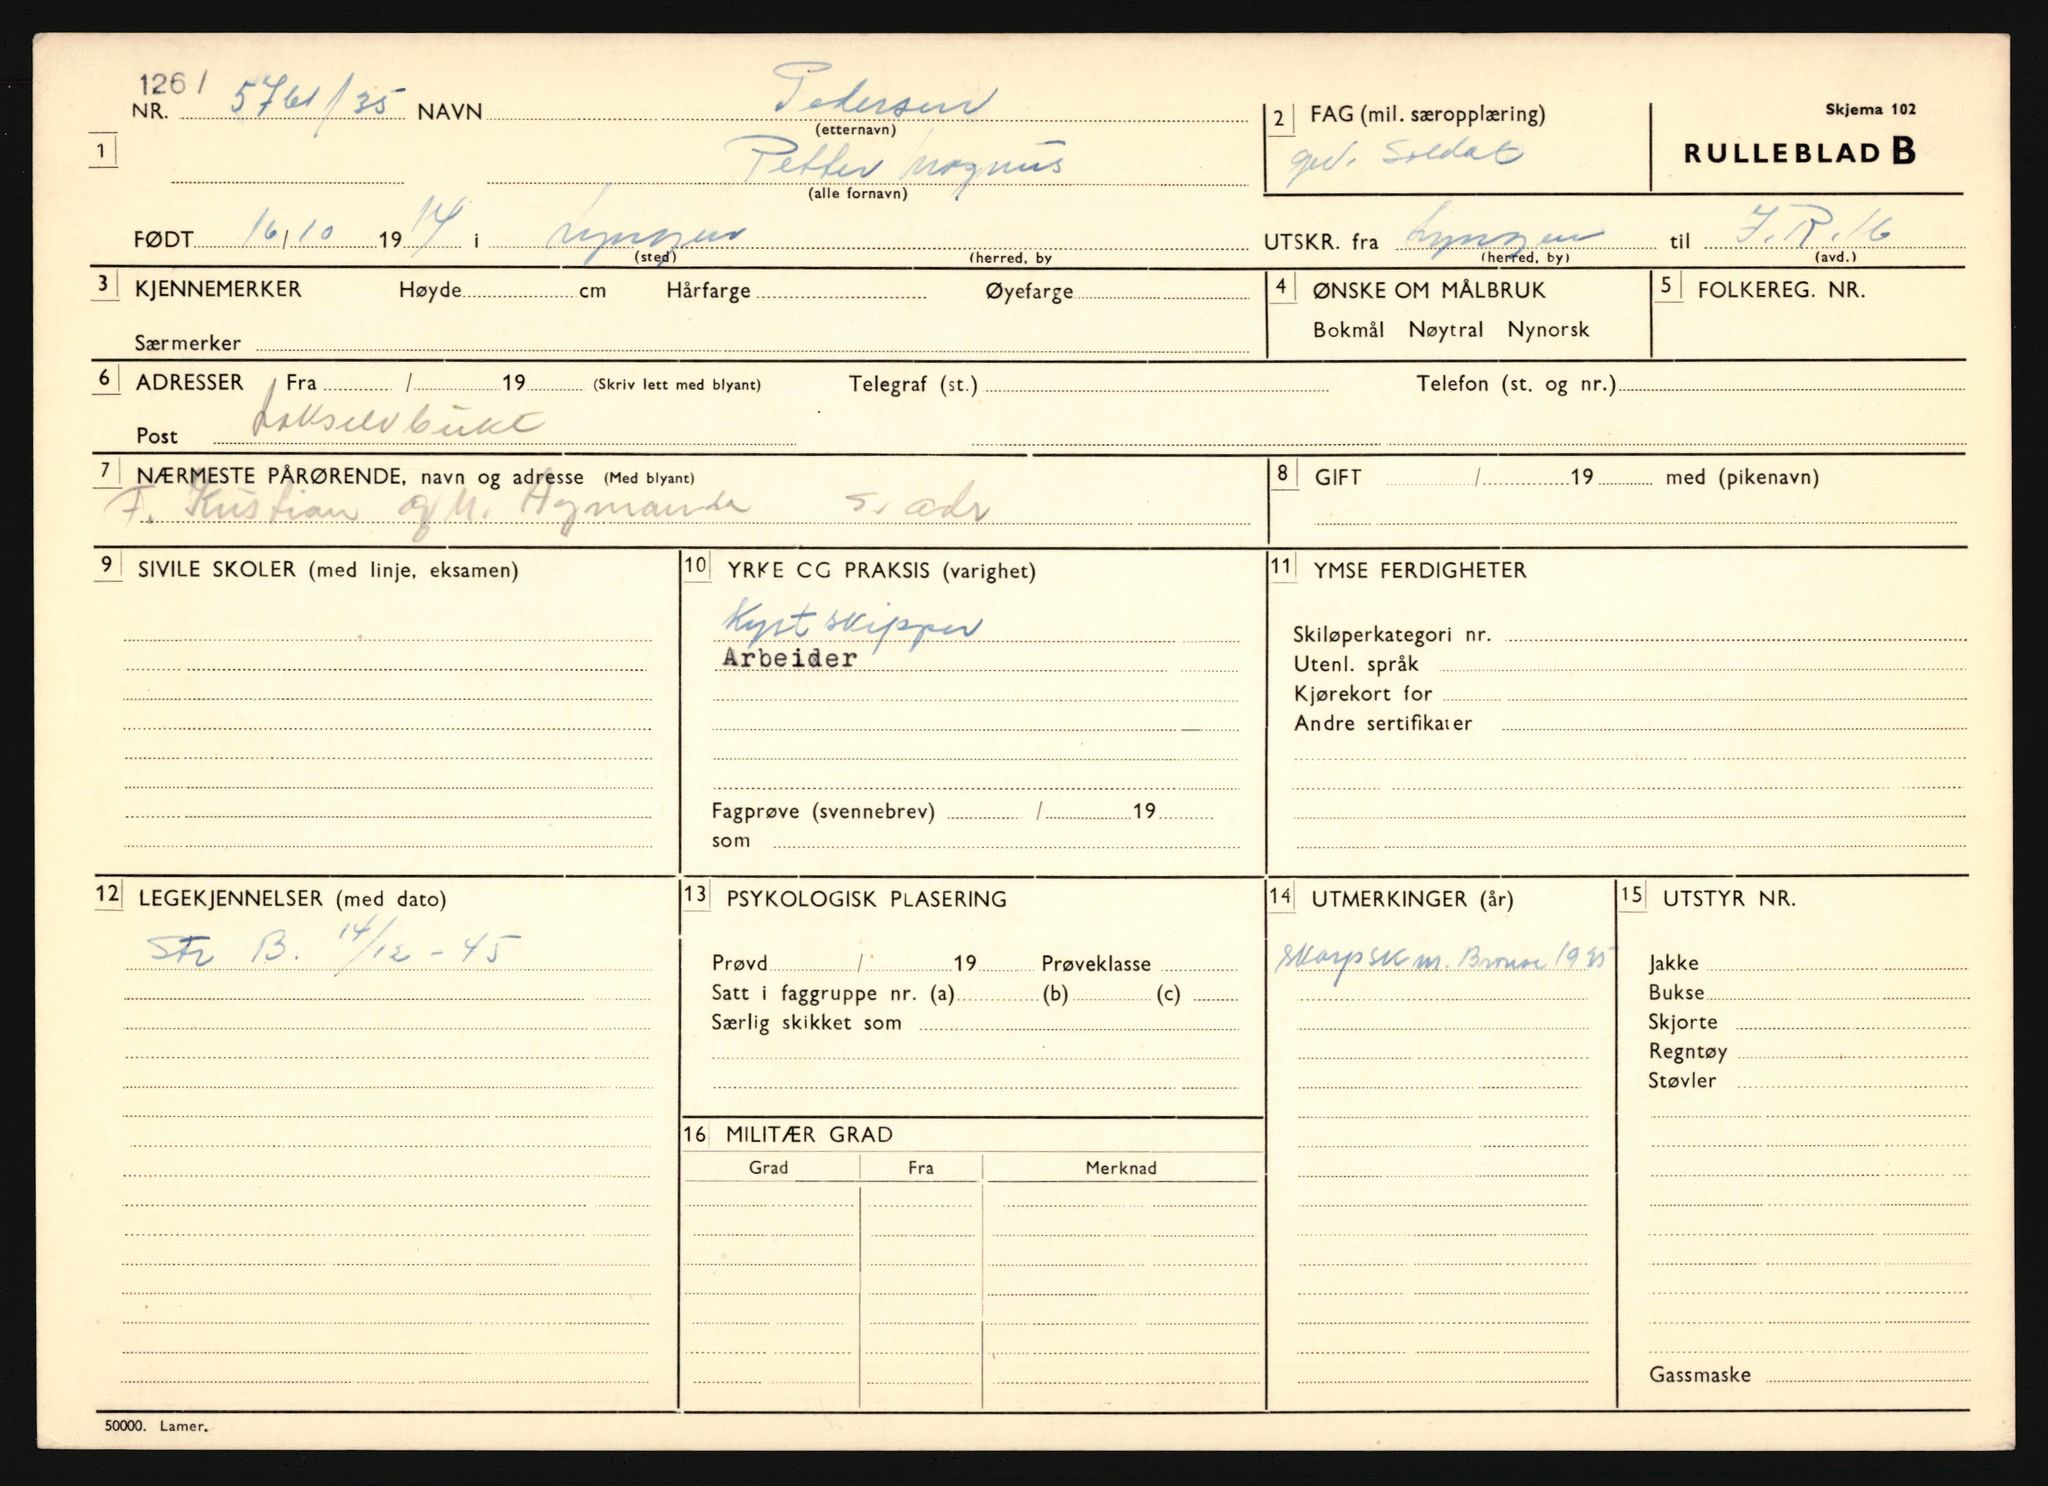 126/
NR. 5761/35 NAVN Pedersen
(etternavn)
1
Petter Magnus
(alle fornavn)
2 FAG (mil. særopplæring)
gev. Soldat
Skjema 102
RULLEBLAD B
FØDT 16/10 1914 i Lyngen
(sted) (herred, by
UTSKR. fra Lyngen til I.R.16
(herred, by) (avd.)
3 KJENNEMERKER Høyde cm Hårfarge Øyefarge
Særmerker
4 ØNSKE OM MÅLBRUK
Bokmål Nøytral Nynorsk
5 FOLKEREG. NR.
6 ADRESSER Fra / 19 (Skriv lett med blyant) Telegraf (st.) Telefon (st. og nr.)
Post Lakselvbukt
7 NÆRMESTE PÅRØRENDE, navn og adresse (Med blyant)
F. Kristian og M. s. adr
8 GIFT / 19 med (pikenavn)
9 SIVILE SKOLER (med linje, eksamen)
10 YRKE CG PRAKSIS (varighet)
Kystskipper
Arbeider
Fagprøve (svennebrev) / 19
som
11 YMSE FERDIGHETER
Skiløperkategori nr.
Utenl. språk
Kjørekort for
Andre sertifikater
12 LEGEKJENNELSER (med dato)
Str B. 14/12-45
13 PSYKOLOGISK PLASERING
Prøvd / 19 Prøveklasse
Satt i faggruppe nr. (a) (b) (c)
Særlig skikket som
14 UTMERKINGER (år)
Skarpsk m. Bronse 1935
15 UTSTYR NR.
Jakke
Bukse
Skjorte
Regntøy
Støvler
Gassmaske
16 MILITÆR GRAD
Grad Fra Merknad
50000. Lamer.